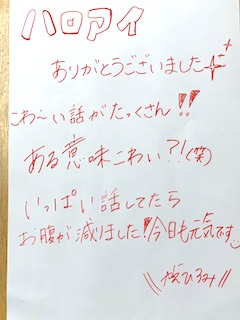 ハロアイ
ありがとうございました
こわ〜い話がたっくさん!!
ある意味こわい?!(笑)
いっぱい話してたら
お腹が減りました!今日も元気です
ひろみ